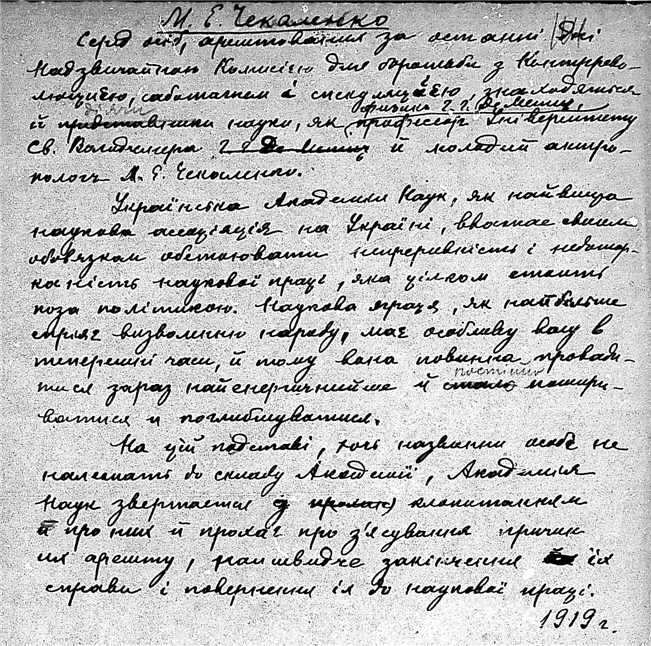 М. Е. Чекаленко
Серед осіб, арештованих за останні дні
Надзвичайною Комисією для боротьби з Контррево-
люцією, саботажем і спекуляцією, знаходяться
физики Г. Г. Де Метц,
й представники науки, як професор Університету
Св. Володимера Г. Г. Де Метц й молодий антро-
пологъ М. Е. Чекаленко.
Українська Академия Наук, як найвища
наукова асоціяція на Україні, вважає своїм
обовязком обстоювати непреривність і недотор-
каність наукової праці, яка цілком стоїть
поза політикою. Наукова праця, як найбільше
сприяє визволенню народу, має особливу вагу в
теперешні часи, й тому вона повинна провади-
постійно
тися зараз найенергичнійше й стало пошири-
ватися и поглиблюватися.
На цій подставі, хоч названни особи не
належать до складу Академії, Академия
Наук звертается з клопотанням
й про них й прохає про з'ясування причин
их арешту, найшвидче закінчення їх
справи і повернення їх до наукової праці.
1919 г.